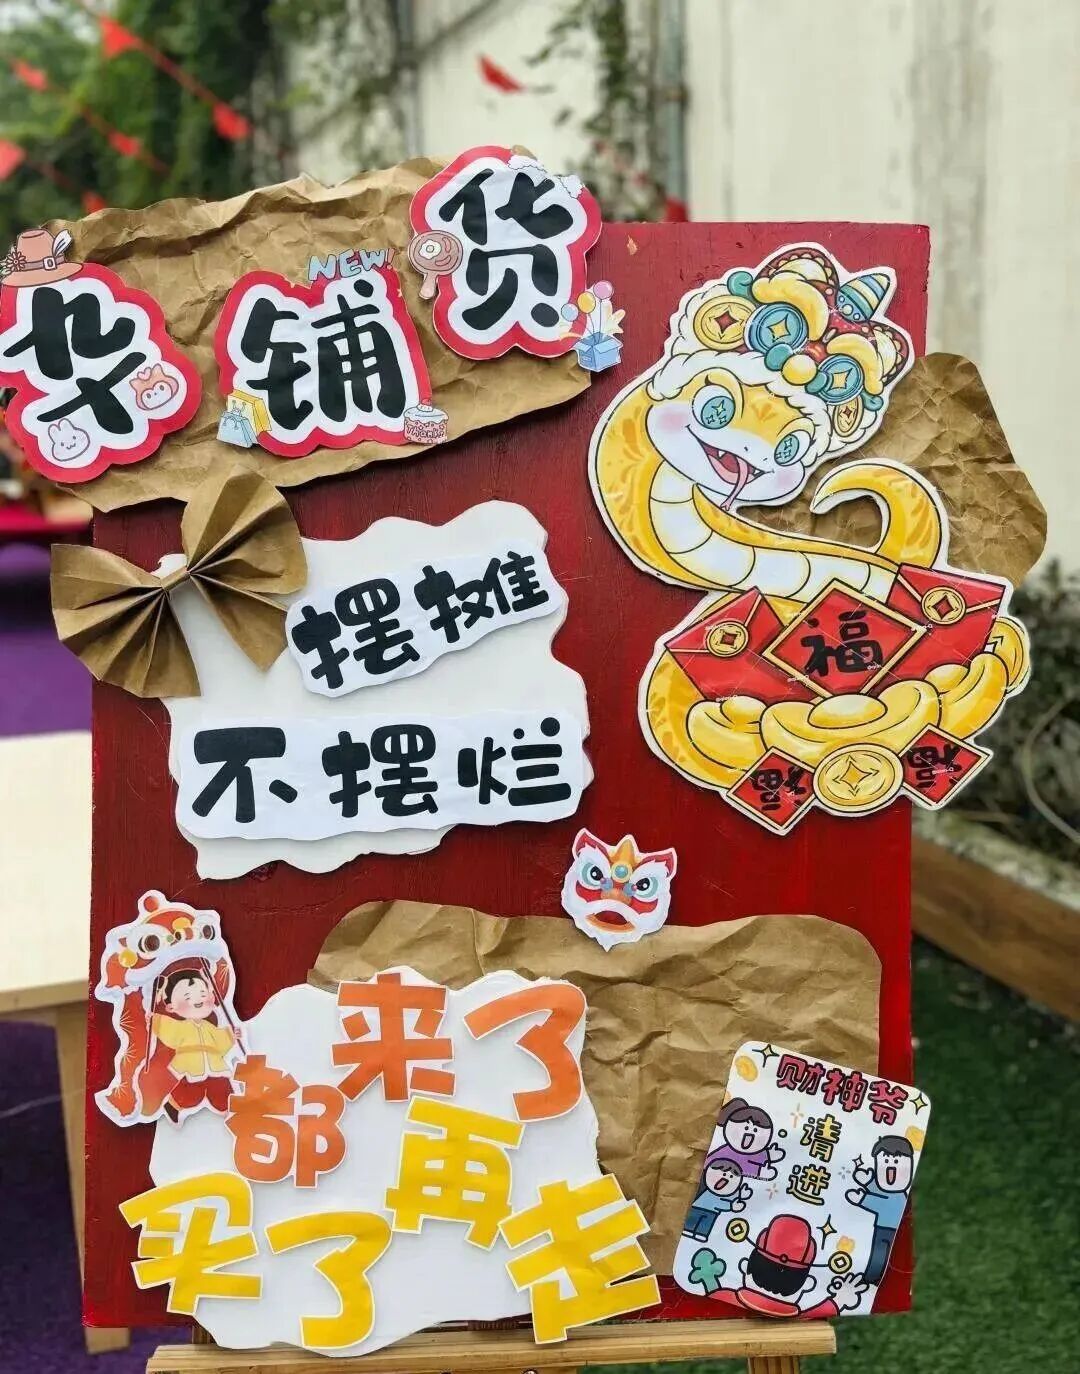 杂铺货
NEW!
摆摊
不摆烂
福
都来了
买了再走
财神爷
请进